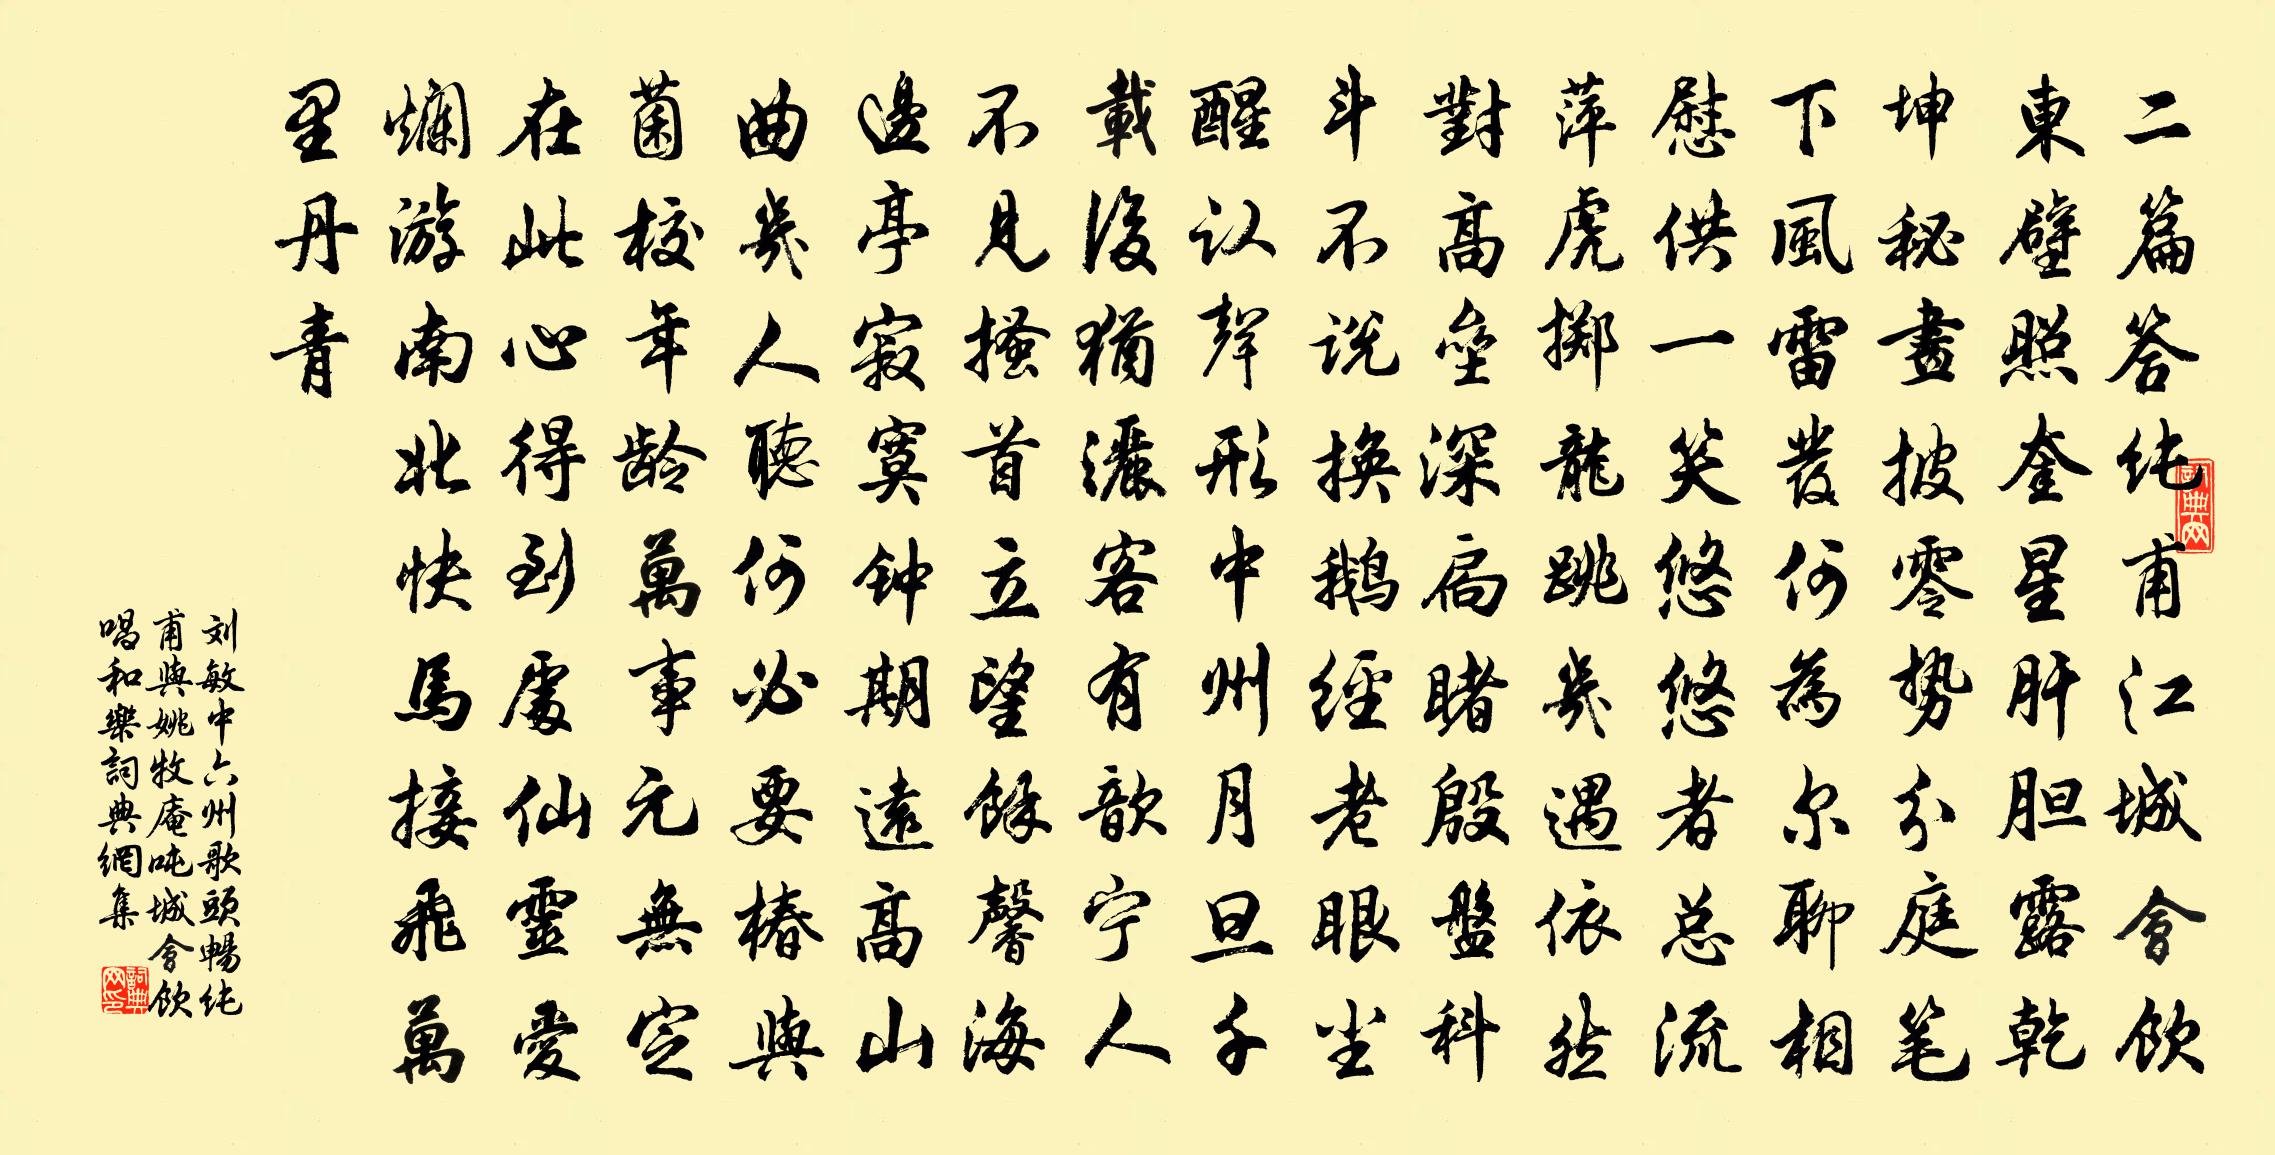 二篇答纯甫江城會飲
東壁照奎星肝胆露乾
坤秘畫披零势分庭笔
下風雷發何為尔聊相
慰供一笑悠悠者总流
萍虎掷龍跳幾遇依然
對高壘深扃睹殷盤科
斗不説換鹅經老眼坐
醒认聲形中州月旦千
載後猶灑客有歆宁人
不見搔首立望餘馨海
邊亭寂寞钟期遠高山
曲幾人聽何必要椿與
菌校年龄萬事元無定
在此心得到處仙靈愛
爛游南北快馬接飛萬
里丹青
刘敏中六州歌頭暢纯
甫與姚牧庵吨城會飲
唱和樂詞典網集
詞典网
詞典网印